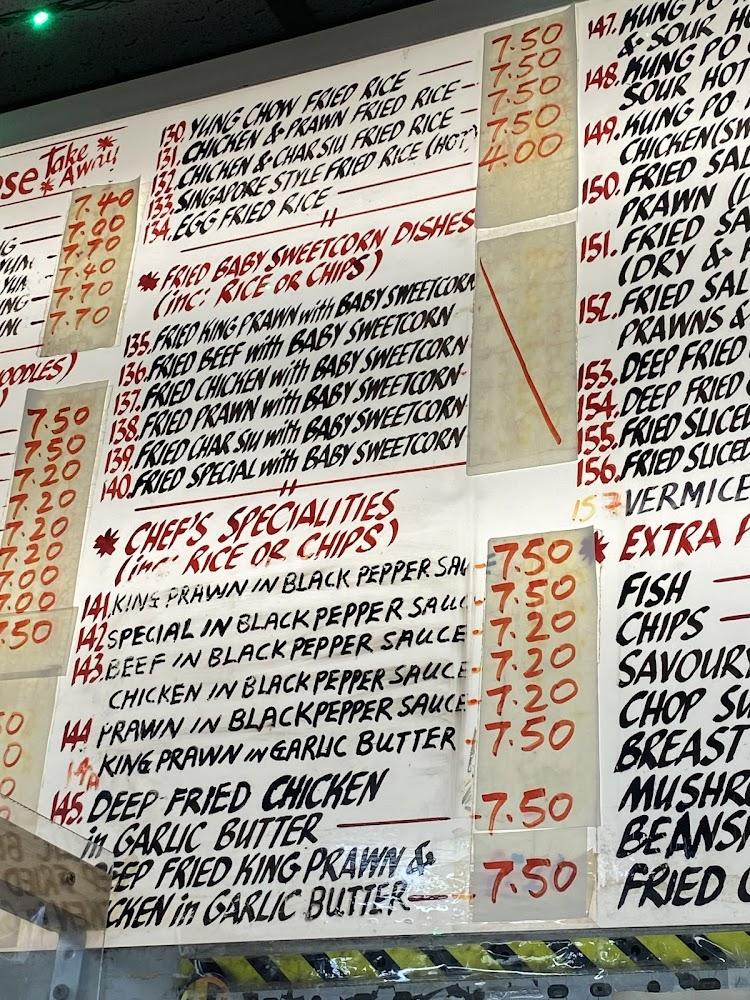 Take
Away
7.40
7.00
7.70
7.40
7.70
7.70
7.50
7.50
7.20
7.20
7.20
7.20
7.00
7.00
7.50
130. YUNG CHOW FRIED RICE 7.50
131. CHICKEN & PRAWN FRIED RICE 7.50
132. CHICKEN & CHAR SIU FRIED RICE 7.50
133. SINGAPORE STYLE FRIED RICE (HOT) 7.50
134. EGG FRIED RICE 4.00
FRIED BABY SWEETCORN DISHES
(inc: RICE OR CHIPS)
135. FRIED KING PRAWN with BABY SWEETCORN
136. FRIED BEEF with BABY SWEETCORN
137. FRIED CHICKEN with BABY SWEETCORN
138. FRIED PRAWN with BABY SWEETCORN
139. FRIED CHAR SIU with BABY SWEETCORN
140. FRIED SPECIAL with BABY SWEETCORN
CHEF'S SPECIALITIES
(inc: RICE OR CHIPS)
141. KING PRAWN IN BLACK PEPPER 7.50
142. SPECIAL IN BLACK PEPPER 7.50
143. BEEF IN BLACK PEPPER SAUCE 7.20
CHICKEN IN BLACK PEPPER SAUCE 7.20
144 PRAWN IN BLACKPEPPER SAUCE 7.20
KING PRAWN IN GARLIC BUTTER 7.50
145. DEEP FRIED CHICKEN
in GARLIC BUTTER 7.50
DEEP FRIED KING PRAWN &
CHICKEN in GARLIC BUTTER 7.50
147. KUNG PO
& SOUR
148. KUNG PO
SOUR HOT
149. KUNG PO
CHICKEN
150. FRIED
PRAWN
151. FRIED
(DRY &
152. FRIED
PRAWNS &
153. DEEP FRIED
154. DEEP FRIED
155. FRIED SLICED
156. FRIED SLICED
157 
EXTRA
FISH
CHIPS
SAVOURY
CHOP
BREAST
FRIED